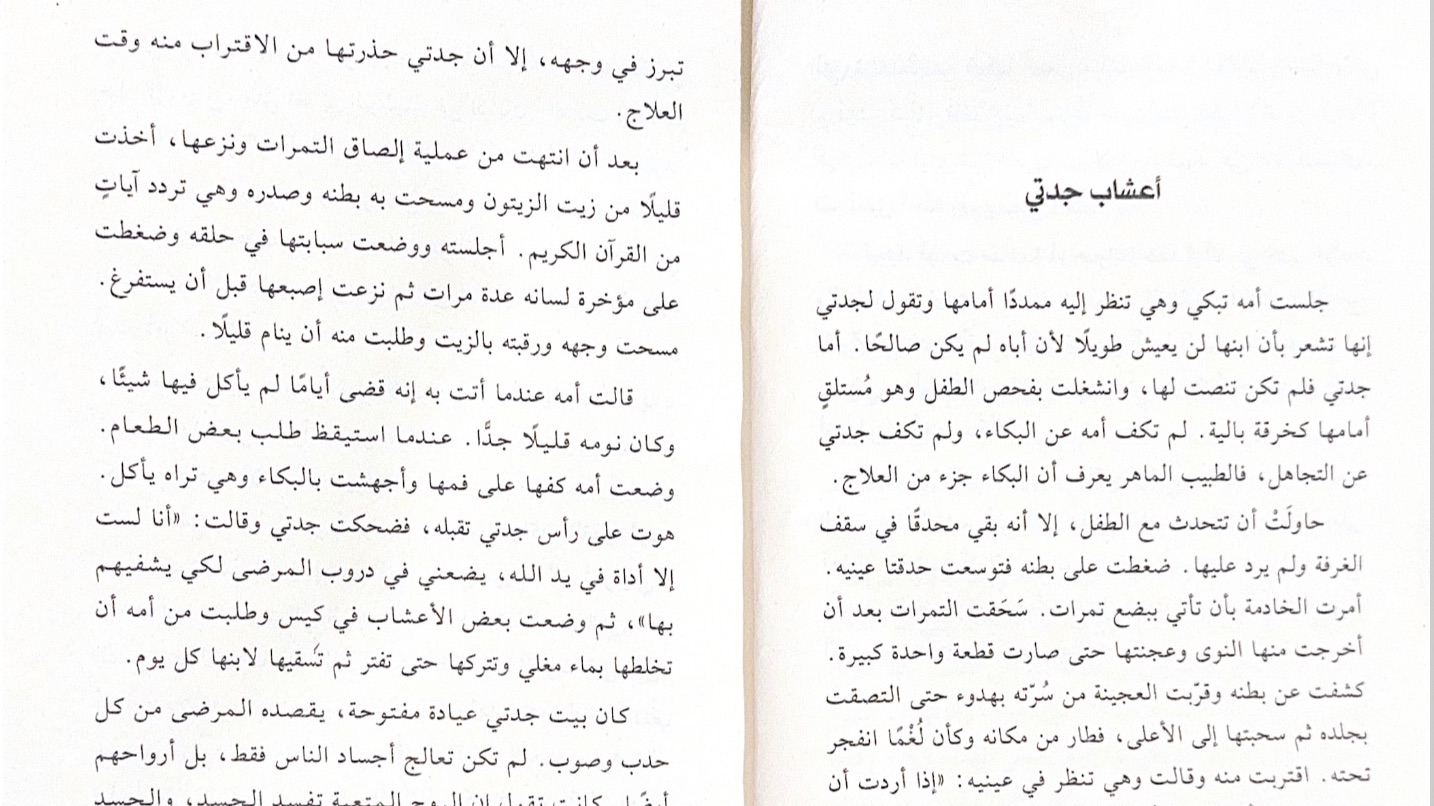 أعشاب جدتي
جلست أمه تبكي وهي تنظر إليه ممددًا أمامها وتقول لجدتي
إنها تشعر بأن ابنها لن يعيش طويلًا لأن أباه لم يكن صالحًا. أما
جدتي فلم تكن تنصت لها، وانشغلت بفحص الطفل وهو مُستلقٍ
أمامها كخرقة بالية. لم تكف أمه عن البكاء، ولم تكف جدتي
عن التجاهل، فالطبيب الماهر يعرف أن البكاء جزء من العلاج.
حاولَتْ أن تتحدث مع الطفل، إلا أنه بقي محدقًا في سقف
الغرفة ولم يرد عليها. ضغطت على بطنه فتوسعت حدقتا عينيه.
أمرت الخادمة بأن تأتي ببضع تمرات. سَحَقت التمرات بعد أن
أخرجت منها النوى وعجنتها حتى صارت قطعة واحدة كبيرة.
كشفت عن بطنه وقرّبت العجينة من سُرّته بهدوء حتى التصقت
بجلده ثم سحبتها إلى الأعلى، فطار من مكانه وكأن لُغْمًا انفجر
تحته. اقتربت منه وقالت وهي تنظر في عينيه: «إذا أردت أن
تبرز في وجهه، إلا أن جدتي حذرتها من الاقتراب منه وقت
العلاج.
بعد أن انتهت من عملية إلصاق التمرات ونزعها، أخذت
قليلًا من زيت الزيتون ومسحت به بطنه وصدره وهي تردد آياتٍ
من القرآن الكريم. أجلسته ووضعت سبابتها في حلقه وضغطت
على مؤخرة لسانه عدة مرات ثم نزعت إصبعها قبل أن يستفرغ.
مسحت وجهه ورقبته بالزيت وطلبت منه أن ينام قليلًا.
قالت أمه عندما أتت به إنه قضى أيامًا لم يأكل فيها شيئًا،
وكان نومه قليلًا جدًّا. عندما استيقظ طلب بعض الطعام.
وضعت أمه كفها على فمها وأجهشت بالبكاء وهي تراه يأكل.
هوت على رأس جدتي تقبله، فضحكت جدتي وقالت: «أنا لست
إلا أداة في يد الله، يضعني في دروب المرضى لكي يشفيهم
بها»، ثم وضعت بعض الأعشاب في كيس وطلبت من أمه أن
تخلطها بماء مغلي وتتركها حتى تفتر ثم تَسقيها لابنها كل يوم.
كان بيت جدتي عيادة مفتوحة، يقصده المرضى من كل
حدب وصوب. لم تكن تعالج أجساد الناس فقط، بل أرواحهم
أيضًا. كانت تقول إن الروح المتعبة تفسد الجسد، والجسد